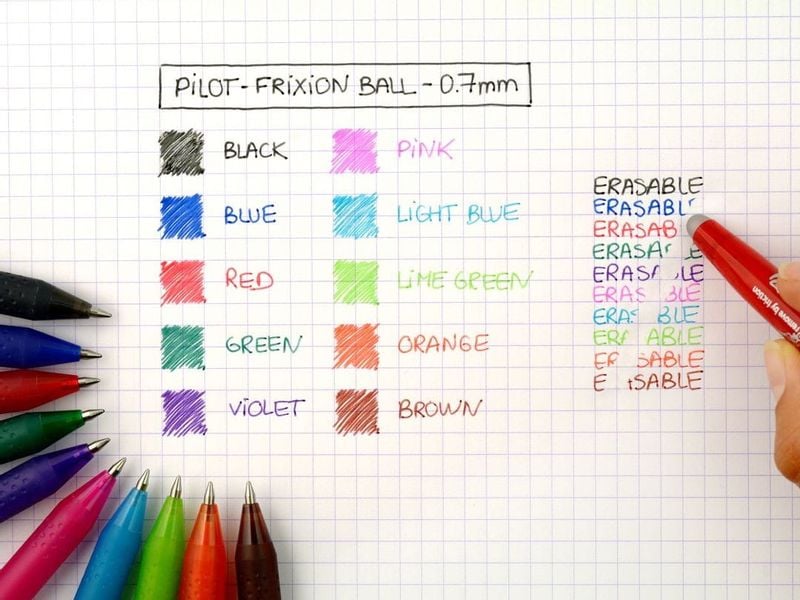 PILOT-FRIXION BALL-0.7mm
BLACK
BLUE
RED
GREEN
VIOLET
PINK
LIGHT BLUE
LIME GREEN
ORANGE
BROWN
ERASABLE
ERASABL
ERASAB
ERASA LE
ERAS LE
ERAS BLE
ERA BLE
ER ABLE
ER SABLE
E SABLE
remove by friction